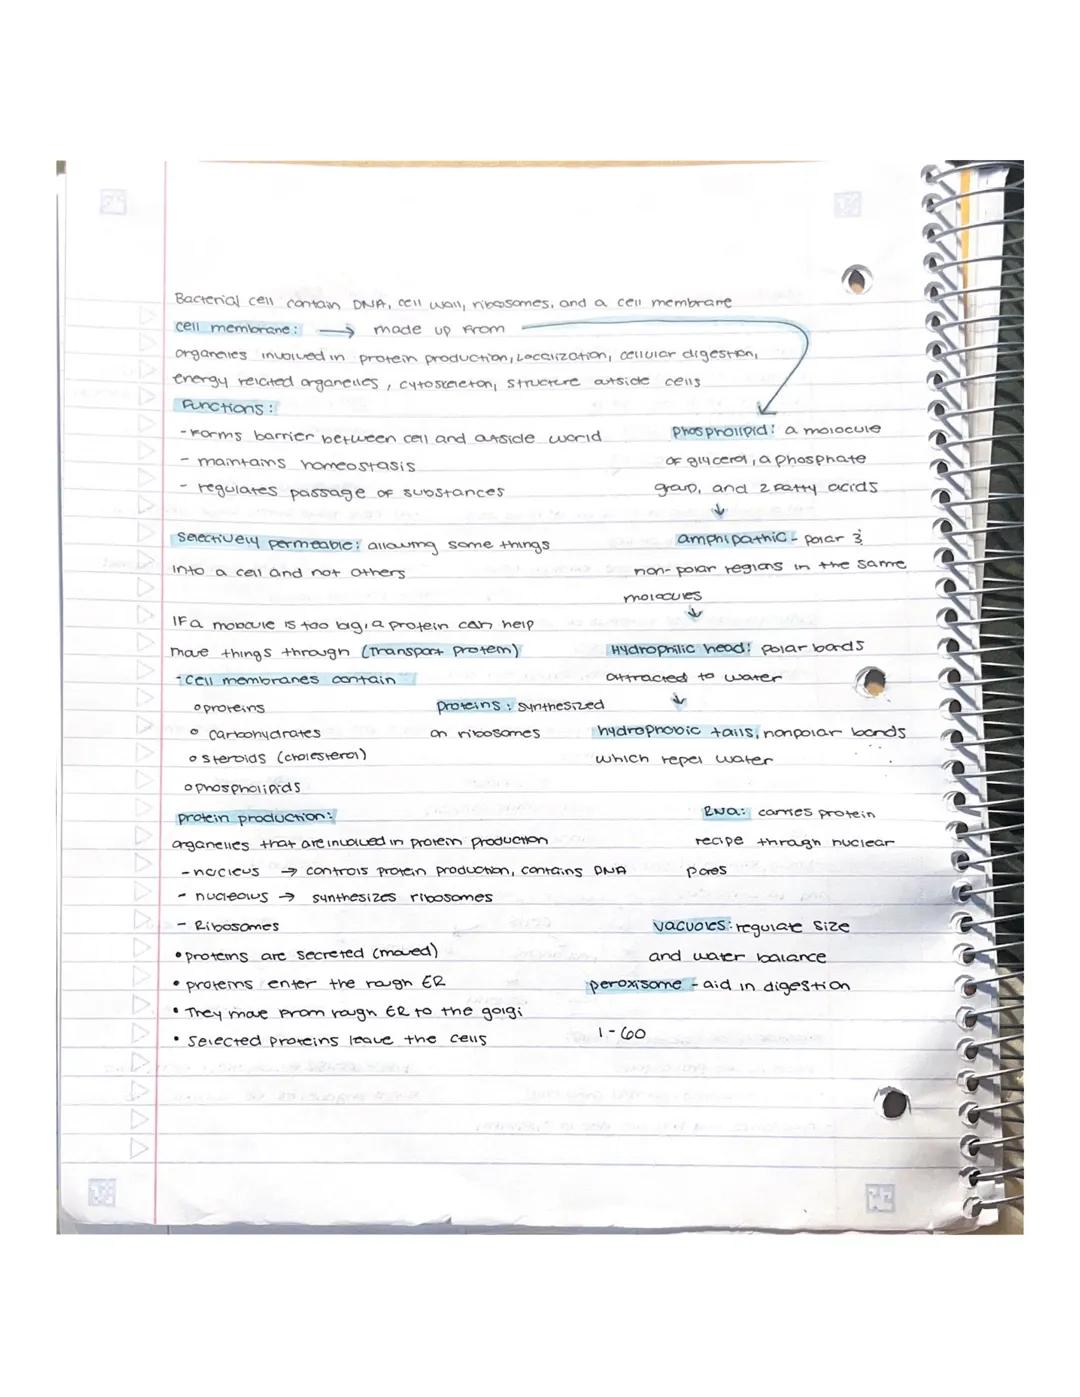 Bacterial cell contain DNA, cell wall, ribosomes, and a cell membrane
cell membrane: → made up from
organelles involved in protein production, Localization, cellular digestion,
energy related organelles, cytoskeleton, structure outside cells
Functions:
- Forms barrier between cell and outside world
- maintains homeostasis
- regulates passage of substances
Phospholipid: a molocule
of glycerol, a phosphate
group, and 2 fatty acids
↓
Selectively permeable: allowing some things
into a cell and not others
amphipathic - polar &
non-polar regions in the same
molocules
↓
If a molocule is too big, a protein can help
move things through (Transport protein)
Hydrophilic head: polar bonds
attracted to water
↓
- Cell membranes contain
o proteins
o carbohydrates
o steroids (cholesterol)
o phospholipids
proteins: synthesized
on ribosomes
hydrophobic tails, nonpolar bonds
which repel water
protein production:
organelles that are involved in protein production
- nucleus → controls protein production, contains DNA
- nucleolus → synthesizes ribosomes
- Ribosomes
• proteins are secreted (moved)
• proteins enter the rough ER
• They move from rough ER to the golgi
• Selected proteins leave the cells
RNA: carries protein
recipe through nuclear
pores
vacuoles: regulate size
and water balance
peroxisome - aid in digestion
1-60